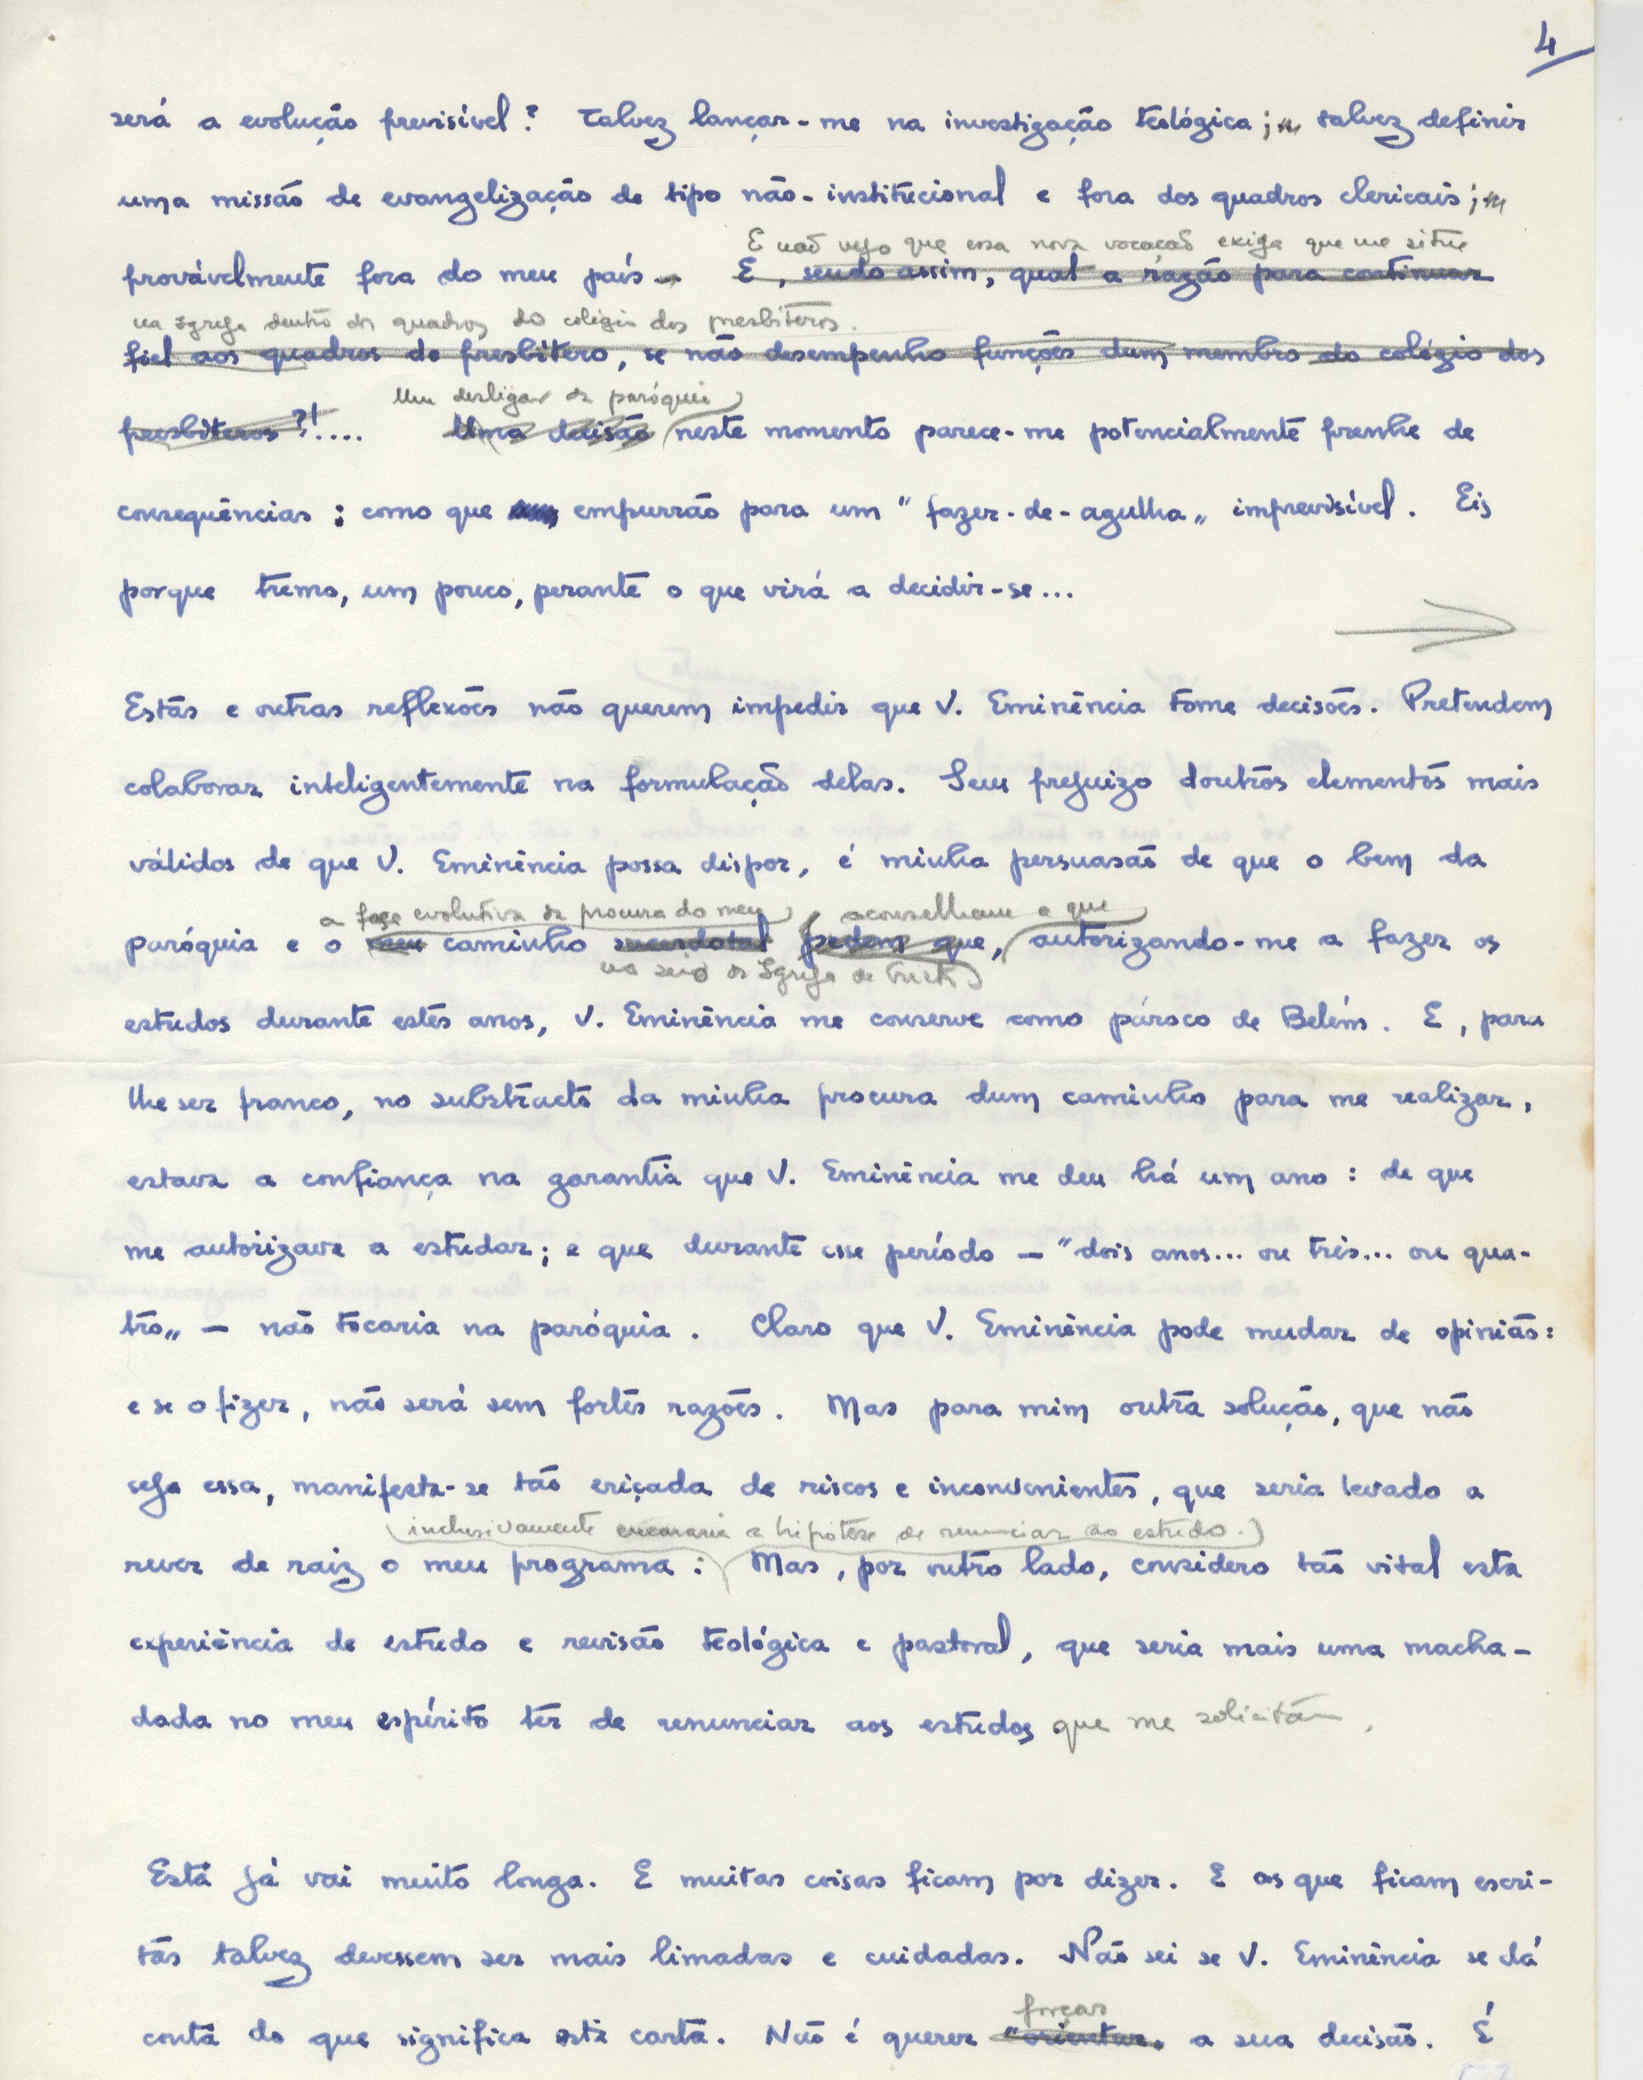 4
será a evolução previsível? Talvez lançar-me na investigação teológica; talvez definir
uma missão de evangelização de tipo não-institucional e fora dos quadros clericais;
E não vejo que essa nova vocação exija que me situe
provávelmente fora do meu país. E, sendo assim, qual a razão para continuar
na Igreja dentro dos quadros do colégio dos presbíteros.
fiel aos quadros do presbítero, se não desempenho funções dum membro do colégio dos
Um desligar da paróquia
presbíteros?!.... Uma decisão neste momento parece-me potencialmente prenhe de
consequências: como que empurrão para um "fazer-de-agulha" imprevisível. Eis
porque tremo, um pouco, perante o que virá a decidir-se...
Estas e outras reflexões não querem impedir que V. Eminência tome decisões. Pretendem
colaborar inteligentemente na formulação delas. Sem prejuizo doutros elementos mais
válidos de que V. Eminência possa dispor, é minha persuasão de que o bem da
a fase evolutiva da procura do meu aconselham a que
paróquia e o meu caminho sacerdotal pedem que, autorizando-me a fazer os
no seio da Igreja de Cristo
estudos durante estes anos, V. Eminência me conserve como pároco de Belém. E, para
lhe ser franco, no substracto da minha procura dum caminho para me realizar,
estava a confiança na garantia que V. Eminência me deu há um ano: de que
me autorizava a estudar; e que durante esse período - "dois anos... ou três... ou qua-
tro" - não tocaria na paróquia. Claro que V. Eminência pode mudar de opinião:
e se o fizer, não será sem fortes razões. Mas para mim outra solução, que não
seja essa, manifesta-se tão eriçada de riscos e inconvenientes, que seria levado a
(inclusivamente encararia a hipótese de renunciar ao estudo.)
rever de raiz o meu programa: Mas, por outro lado, considero tão vital esta
experiência de estudo e revisão teológica e pastoral, que seria mais uma macha-
dada no meu espírito ter de renunciar aos estudos que me solicitam.
Esta já vai muito longa. E muitas coisas ficam por dizer. E as que ficam escri-
tas talvez devessem ser mais limadas e cuidadas. Não sei se V. Eminência se dá
forçar
conta do que significa esta carta. Não é querer "orientar" a sua decisão. É